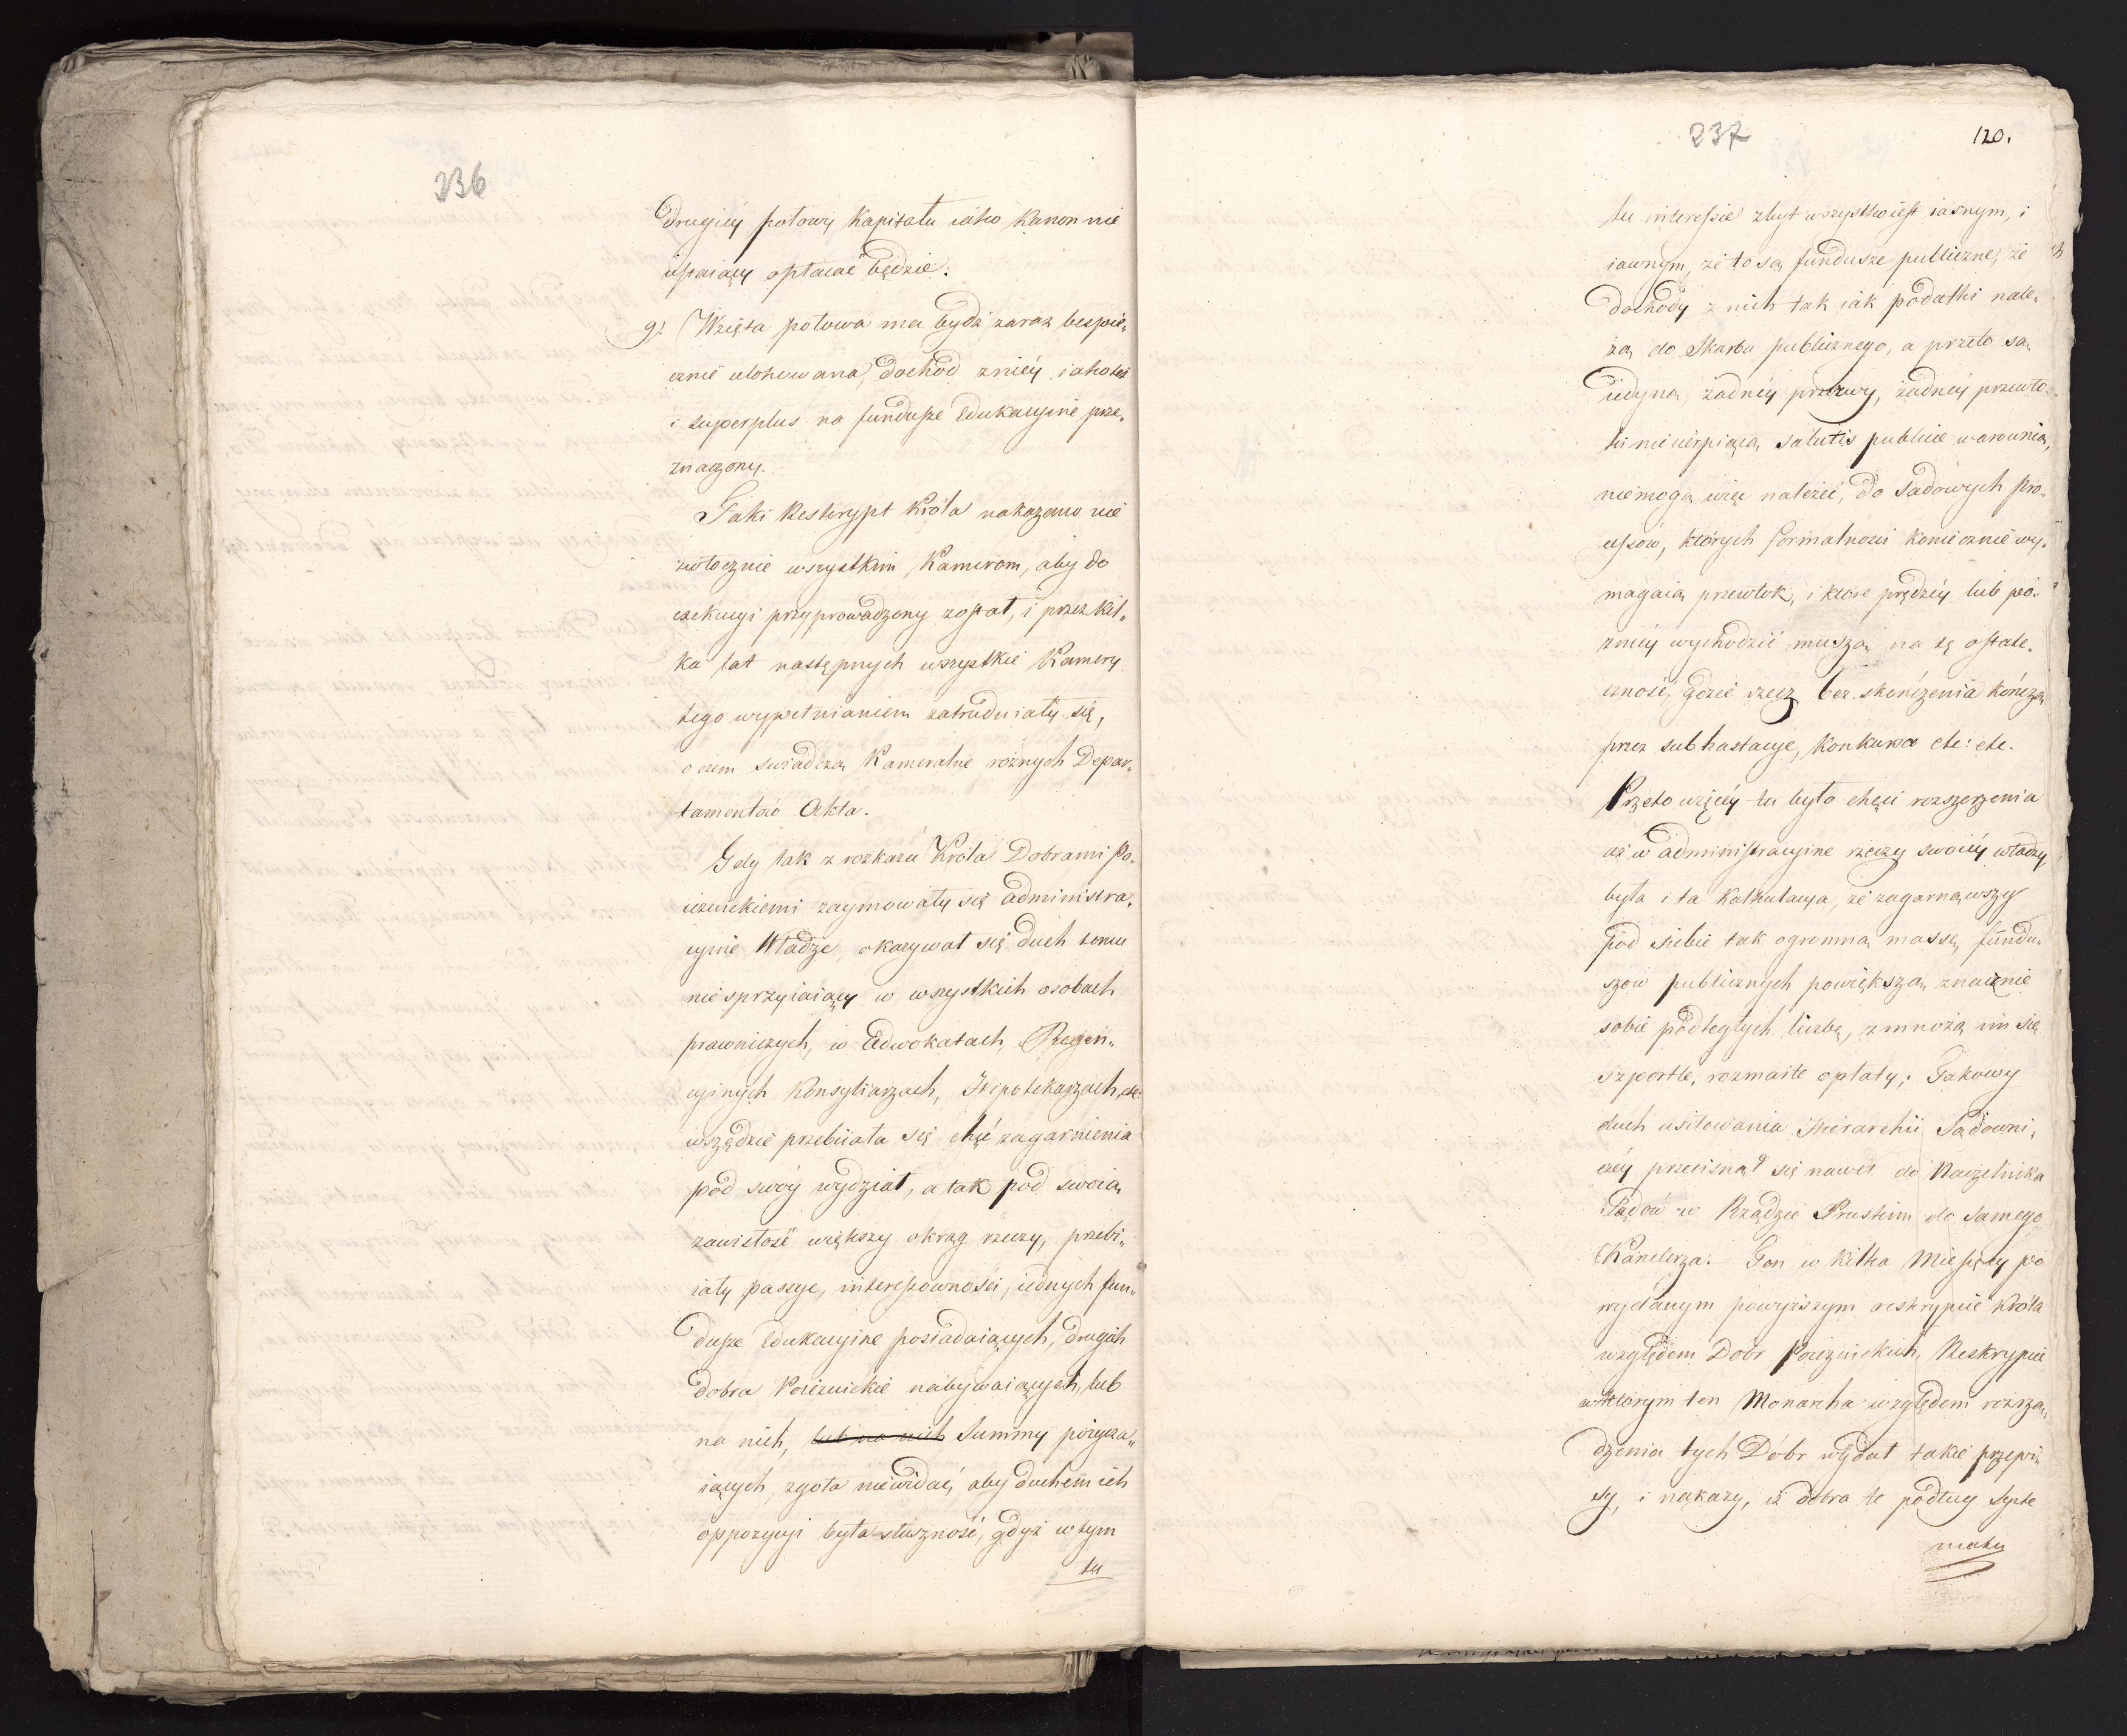 236
drugiey połowy Kapitału iako Kanon nie
ustaiący opłacać będzie.
g). Wzięta połowa ma bydź zaraz bespie„
cznie ulokowana, dochód zniéy iakoteż
i superplus na fundusze Edukacyine prze„
znaczony.
Taki Reskrypt Króla nakazano nie
zwłocznie wszystkim Kamerom, aby do
exekucyi przyprowadzony został, i przez kil„
ka lat następnych wszystkie Kamery
tego wypełnianiem zatrudniały się,
o czem swiadczą Kameralne różnych Depar„
tamentów Akta.
Gdy tak z rozkazu Króla Dobrami Po„
iezuickiemi zaymowały się administra„
cyine Władze, okazywał się duch temu
nie sprzyiaiący w wszystkich osobach
prawniczych, w Adwokatach, Regen„
cyinych Konsyliarzach, Hipotekarzach, etc:
wszędzie przebiiała się chęć zagarnienia
pod swóy wydział, a tak pod swoią
zawisłość większy okrąg rzeczy, przebi„
iały passye, interessowności, iednych fun„
dusze Edukacyine posiadaiących, drugich
dobra Poiezuickie nabywaiących, lub
na nich, lub na nich Summy pożycza„
iących, zgoła niewidać, aby duchem ich
oppozycyi była słuszność, gdyż w tym
tu
237
120.
tu interessie zbyt wszystko iest iasnym, i
iawnym, że to są fundusze publiczne, że
dochody z nich tak iak podatki nale„
żą do Skarbu publicznego, a przeto są
iedyną, żadnéy przerwy, żadnéy przewło„
ki niecierpiącą salutis publicæ warownią,
niemogą więc należeć, do Sądowych pro„
cessów, których formalności koniecznie wy„
magaią przewłok, i które prędzéy lub pó„
źniéy wychodzić muszą na tę ostate„
czność, gdzie rzecz bez skończenia kończą
przez subhastacye, Konkursa etc: etc.
Przeto więcéy tu było chęci rozszerzenia
aż w administracyine rzeczy swoiéy władzy,
była i ta Kalkulacya, że zagarnąwszy
pod siebie tak ogromną massę fundu„
szow publicznych powiększą znacznie
sobie podległych liczbę, zmnożą im się
szportle, rozmaite opłaty; Takowy
duch usiłowania Hierarchii Sądowni„
czéy przecisnął się nawet do Naczelnika
Sądów w Rządzie Pruskim do samego
Kanclerza. Ten w kilka Miesięcy po
wydanym powyższym reskrypcie Króla
względem Dobr Poiezuickich, Reskrypcie
w którym ten Monarcha względem rozrzą„
dzenia tych Dóbr wydał takie przepi„
sy, i nakazy, iż dobra te podług Syste
matu